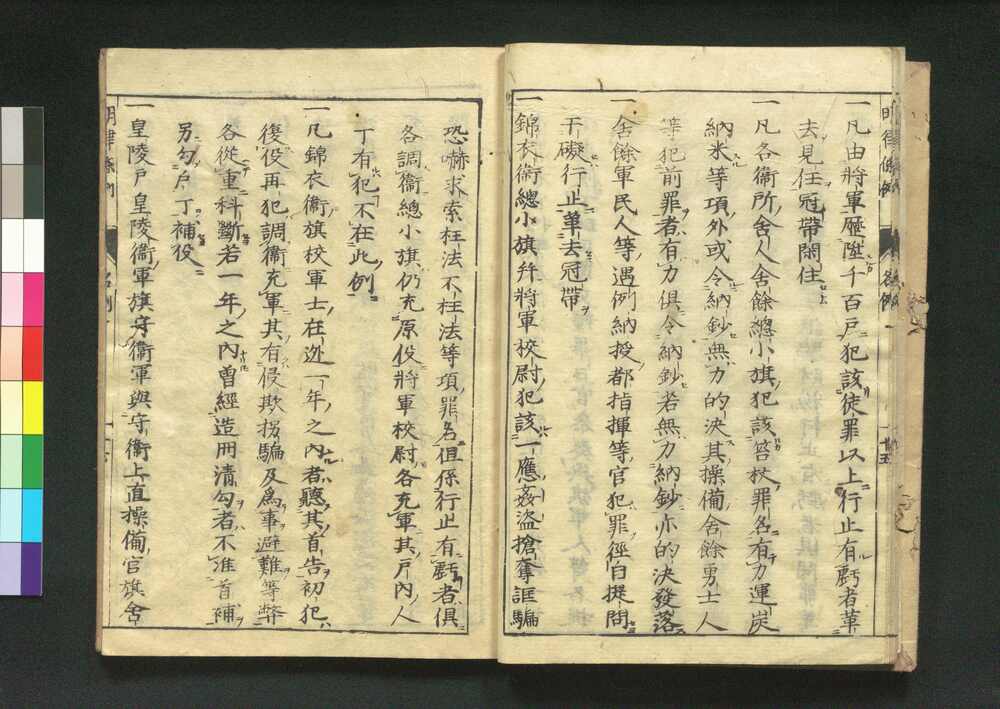 一凡由將軍歷陞千百戶犯該徒罪以上行止有虧者革
去見任冠帶閑住
一凡各衞所舍人舍餘總小旗犯該笞杖罪名有力運炭
納米等項外或令納鈔無力的決其操備舍餘勇士人
等犯前罪者有力俱令納鈔若無力納鈔亦的決發落
一舍餘軍民人等遇例納授都指揮等官犯罪徑自提問
干礙行止革去冠帶
一錦衣衞總小旗幷將軍校尉犯該一應姦盜搶奪誆騙
恐嚇求索枉法不枉法等項罪名但係行止有虧者俱
各調衞總小旗仍充原役將軍校尉各充軍其戶內人
丁有犯不在此例
一凡錦衣衞旗校軍士在逃一年之內者聽其首告初犯
復役再犯調衞充軍其有侵欺拐騙及爲事避難等弊
各從重科斷若一年之內曾經造冊淸勾者不准首補
另勾戶丁補役
一皇陵戶皇陵衞軍旗守衞軍與守衞上直操備官旗舍
明律條例
名例